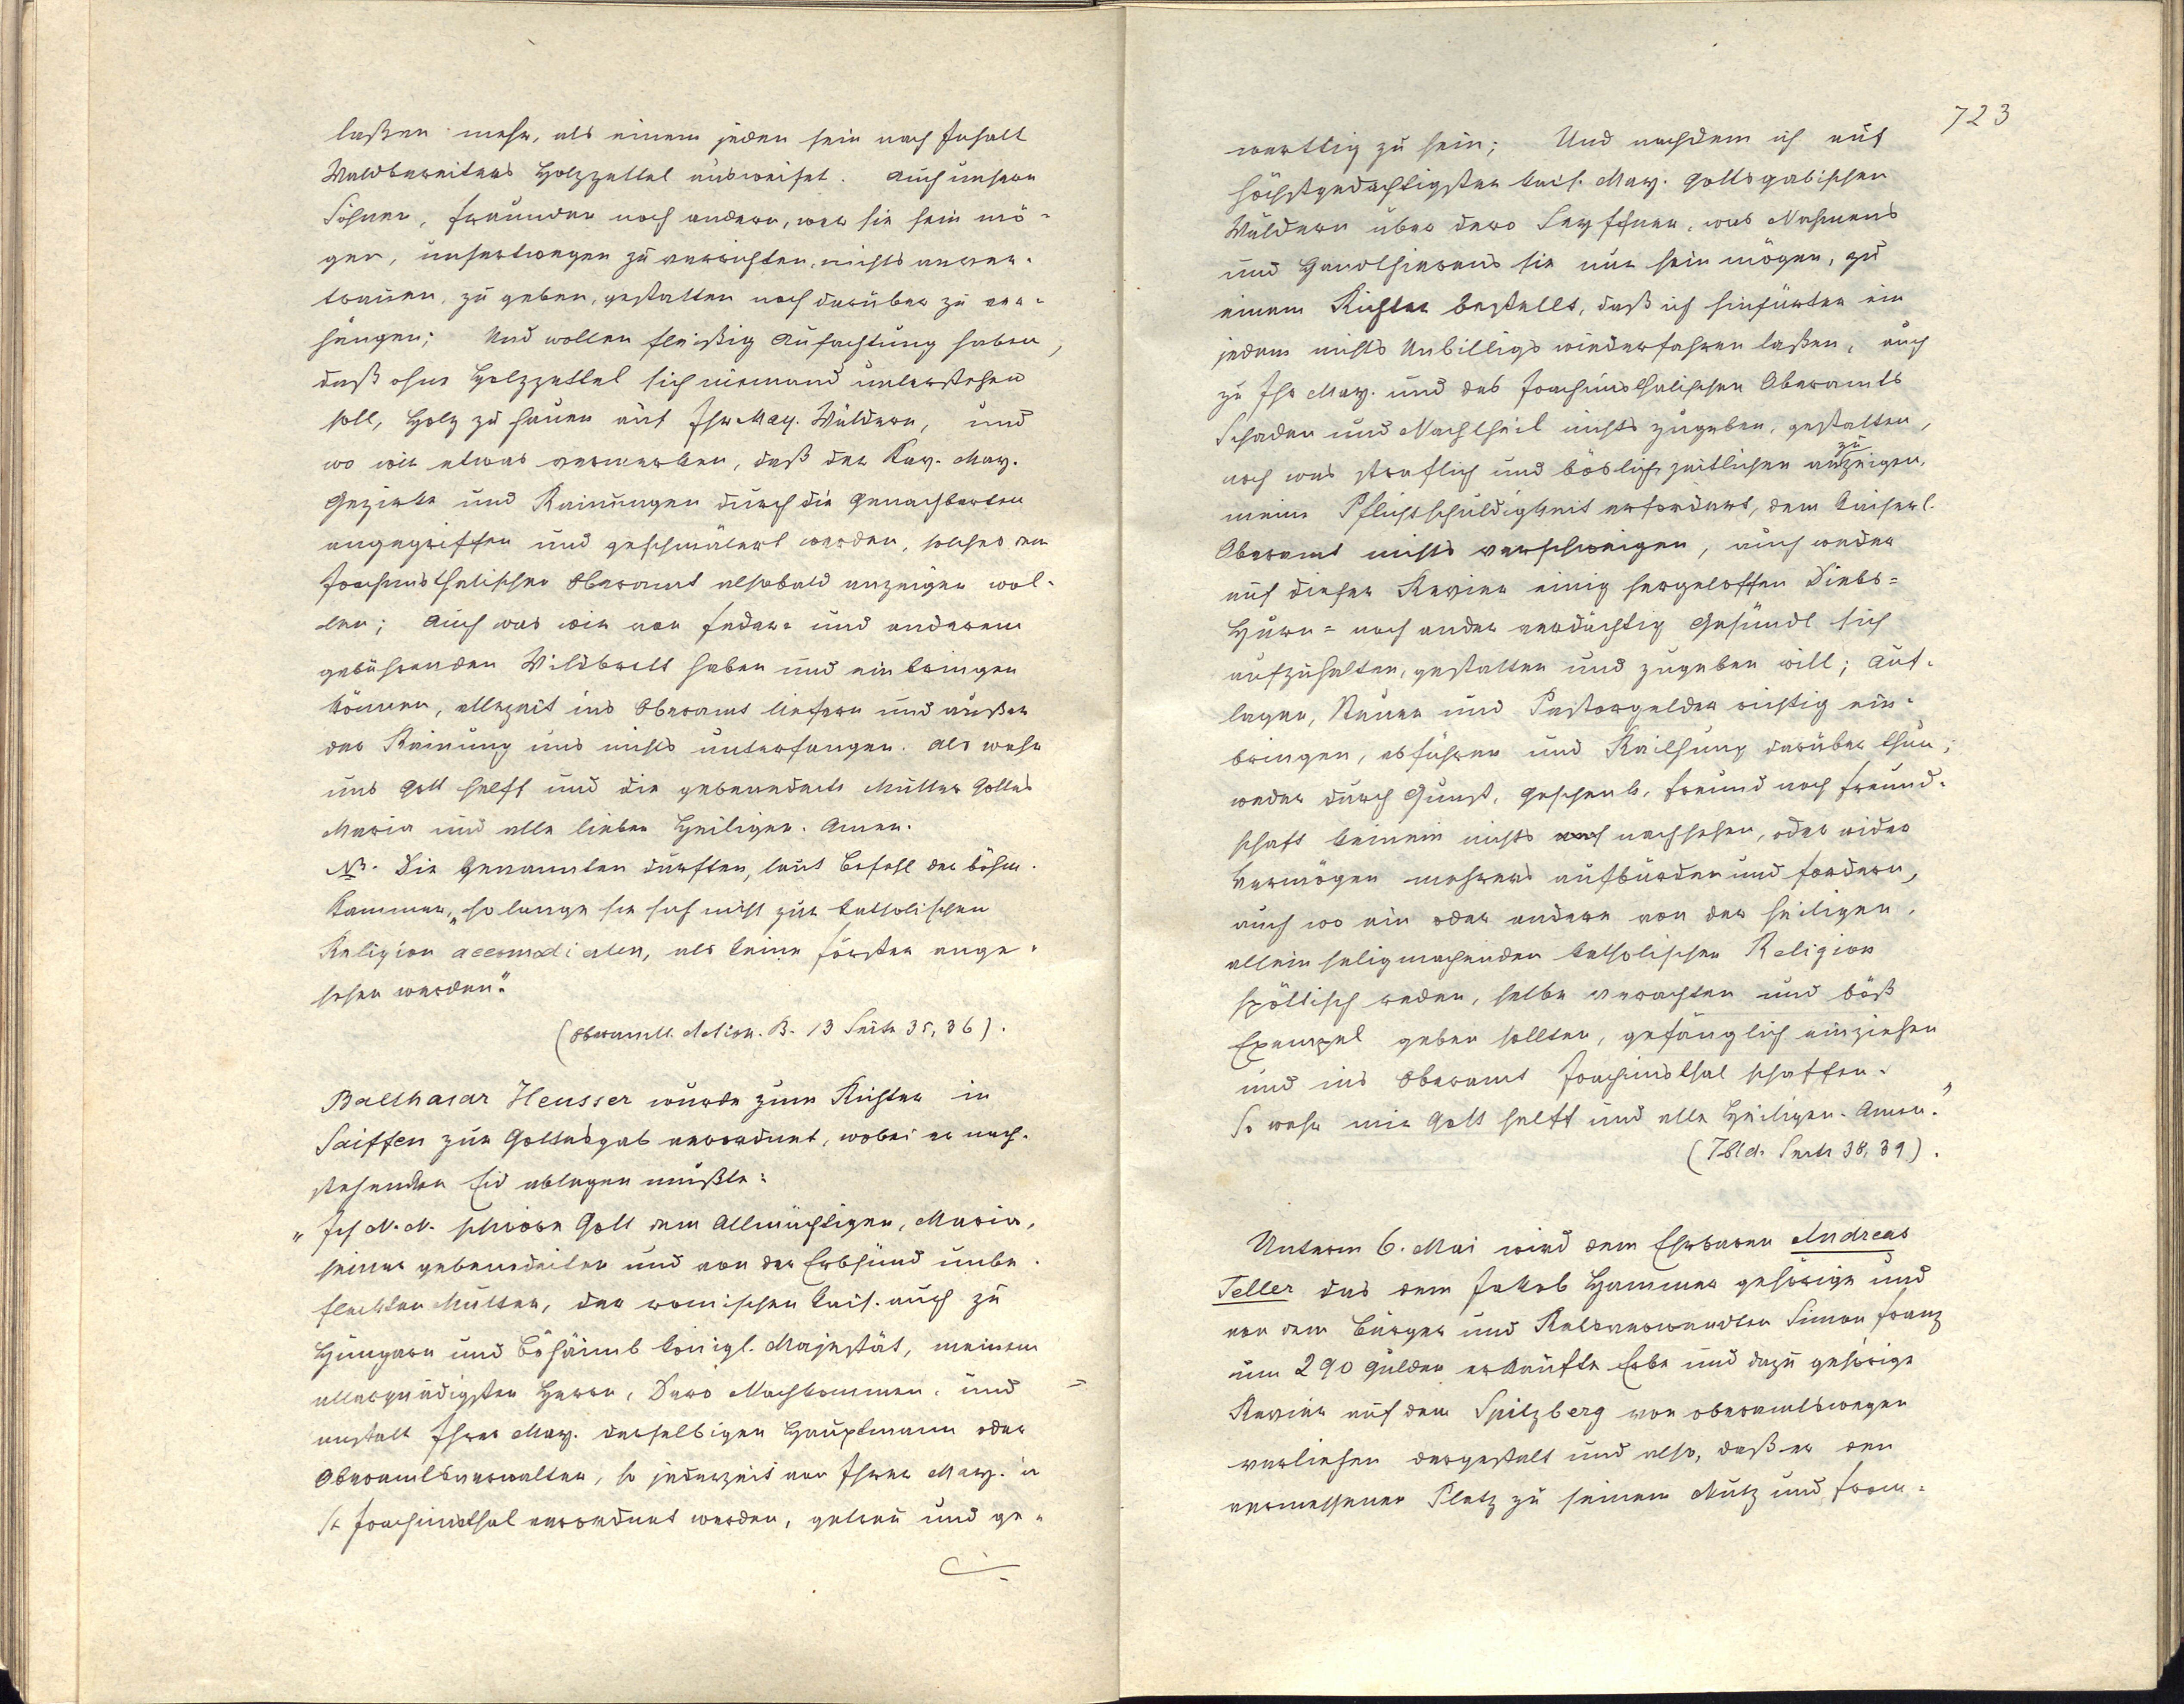 laßen mehr, als einem jeden sein nach Inhalt
Waldbereiters Holzzettel ausweiset. Auch unsern
Söhnen, Freunden noch andern, wer sie sein mö-
gen, unsertwegen zu verrichten, nichts anver-
trauen, zu geben, gestatten noch darüber zu ver-
hängen; Und wollen fleißig Aufachtung haben,
daß ohne Holzzettel sich niemand unterstehen
soll, Holz zu hauen auf Ihr May. Wäldern, und
wo wir etwas vermerken, daß der Kay. May.
Gezirke und Rainungen durch die Genachbarten
angegriffen und geschmälert werden, solches dem
Joachimsthalischen Oberamt alsobald anzeigen wol-
len; Auch was wir von Feder- und anderem
gebührenden Wildbrett haben und einbringen
können, allezeit ins Oberamt liefern und außer
der Rainung uns nichts unterfangen. Als wahr
uns Gott helff und die gebenedeite Mutter Gottes
Maria und alle lieben Heiligen. Amen.
NB. Die Genannten durften, laut Befehl der böhm.
Kammer, „so lange sie sich nicht zur katholischen
Religion accomodieren, als keine Förster ange-
sehen werden."
(Oberamtl. Action. B. 13 Seite 35, 36).
Balthasar Heusser wurde zum Richter in
Saiffen zur Gottesgab verordnet, wobei er nach-
stehenden Eid ablegen mußte:
„Ich N. N. schwöre Gott dem Allmächtigen, Maria,
seiner gebenedeiten und von der Erbsünd unbe-
fleckten Mutter, der romischen kais. auch zu
Hungarn und Böhaimb königl. Majestät, meinem
allergnädigsten Herrn, Dero Nachkommen, und =
anstatt Ihrer May. derselbigen Hauptmann oder
Oberamtsverwalter, so jederzeit von Ihrer May. in
St Joachimsthal verordnet werden, getreu und ge-
723
warttig zu sein; Und nachdem ich auf
höchstgedächtigster kais. May. gottsgabischen
Wäldern über dero Seyffner, was Nahmens
und Handthierens sie nur sein mögen, zu
einem Richter bestellt, daß ich hinfürter ein
jedem nichts Unbilligs wiederfahren laßen, auch
zu Ihr May. und des Joachimsthalischen Oberamts
Schaden und Nachtheil nichts zugeben, gestatten,
noch was straflich und böslich zeitlichen anzuzeigen,
meine Pflichtschuldigkeit erfordert, dem kaiserl.
Oberamt nichts verschweigen, auch weder
auf dieser Revier einig hergeloffen Diebs-
Hurn- noch ander verdächtig Gesündl sich
aufzuhalten, gestatten und zugeben will; Auf-
lagen, Steuer und Pastorgelder richtig ein-
bringen, abführen und Raithung darüber thun;
weder durch Gunst, Geschenk, Freund noch Freund-
schaft keinem nichts nachsehen, oder wider
Vermögen mehrers aufbürden und fordern,
auch wo ein oder andere von der heiligen,
allein seligmachenden katholischen Religion
spöttisch reden, selbe verachten und böß
Exempel geben sollten, gefänglich einziehen
und ins Oberamt Joachimsthal schaffen.
So wahr mir Gott helff und alle Heiligen. Amen."
(Ibid. Seite 38, 39).
Unterm 6. Mai wird dem Ehrbaren Andreas
Teller das dem Jakob Hammer gehörige und
von dem Bürger und Ratsverwandten Simon Franz
um 290 Gulden erkaufte Erbe und dazu gehörige
Revier auf dem Spitzberg von oberamtswegen
verliehen dergestalt und also, daß er den
vermessenen Platz zu seinem Nutz und From-